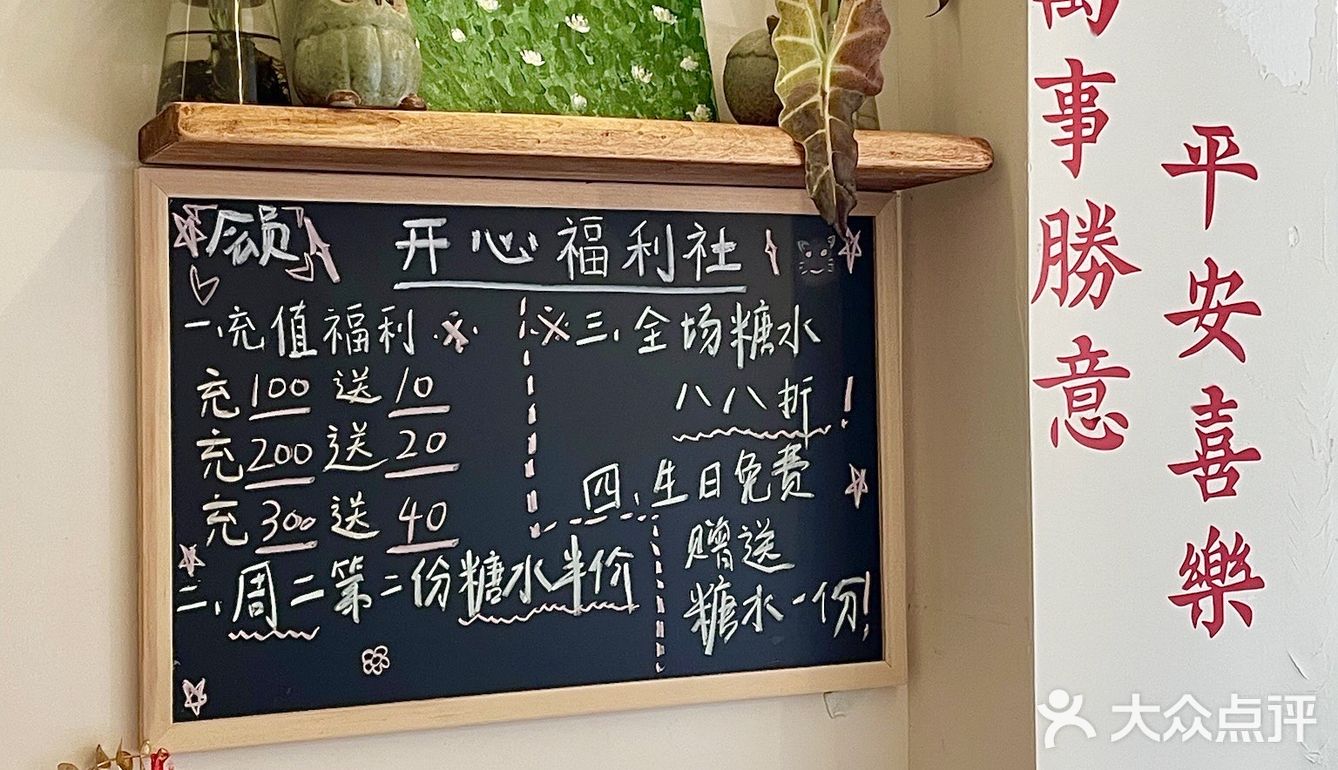 「会员」
开心福利社
一、充值福利
充100送10
充200送20
充300送40
二、周二第二份糖水半价
三、全场糖水
八八折!
四、生日免费
赠送
糖水一份!
萬事勝意
平安喜樂
大众点评